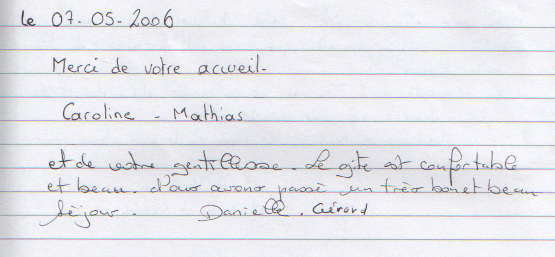 Le 07-05-2006
Merci de votre accueil-
Caroline - Mathias
et de votre gentillesse. Le gîte est confortable
et beau. Nous avons passé un très bon et beau
séjour. Danielle. Gérard